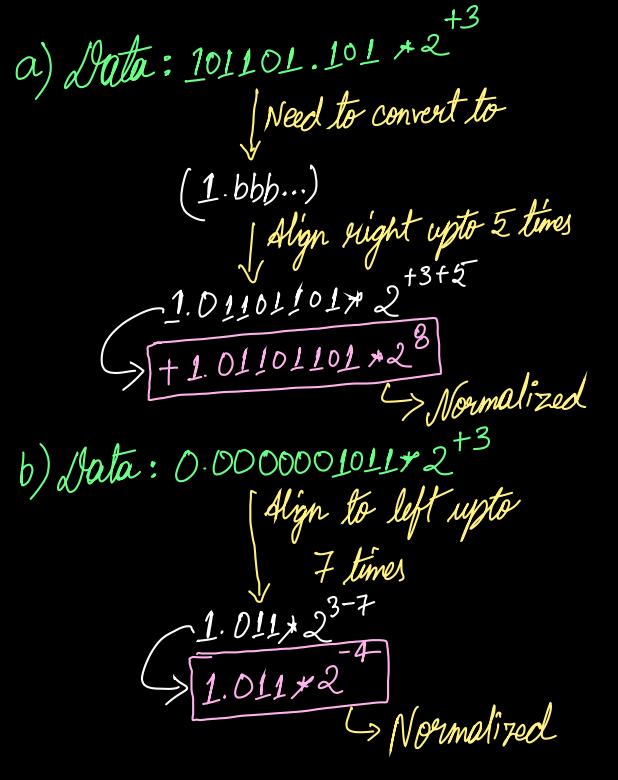 a) Data: 101101.101 * 2^{+3}
Need to convert to
(1.bbb...)
Align right upto 5 times
1.01101101 * 2^{+3+5}
+1.01101101 * 2^8
Normalized
b) Data: 0.0000001011 * 2^{+3}
Align to left upto
7 times
1.011 * 2^{3-7}
1.011 * 2^{-4}
Normalized